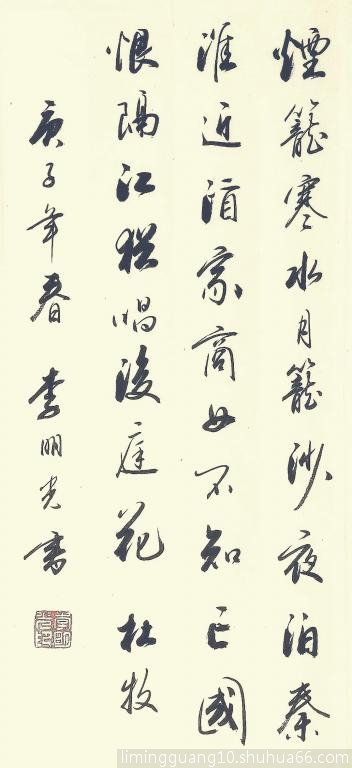 煙籠寒水月籠沙夜泊秦
淮近酒家商女不知亡國
恨隔江猶唱後庭花 杜牧
庚子年春 李明光書
limingguang10.shuhua66.com